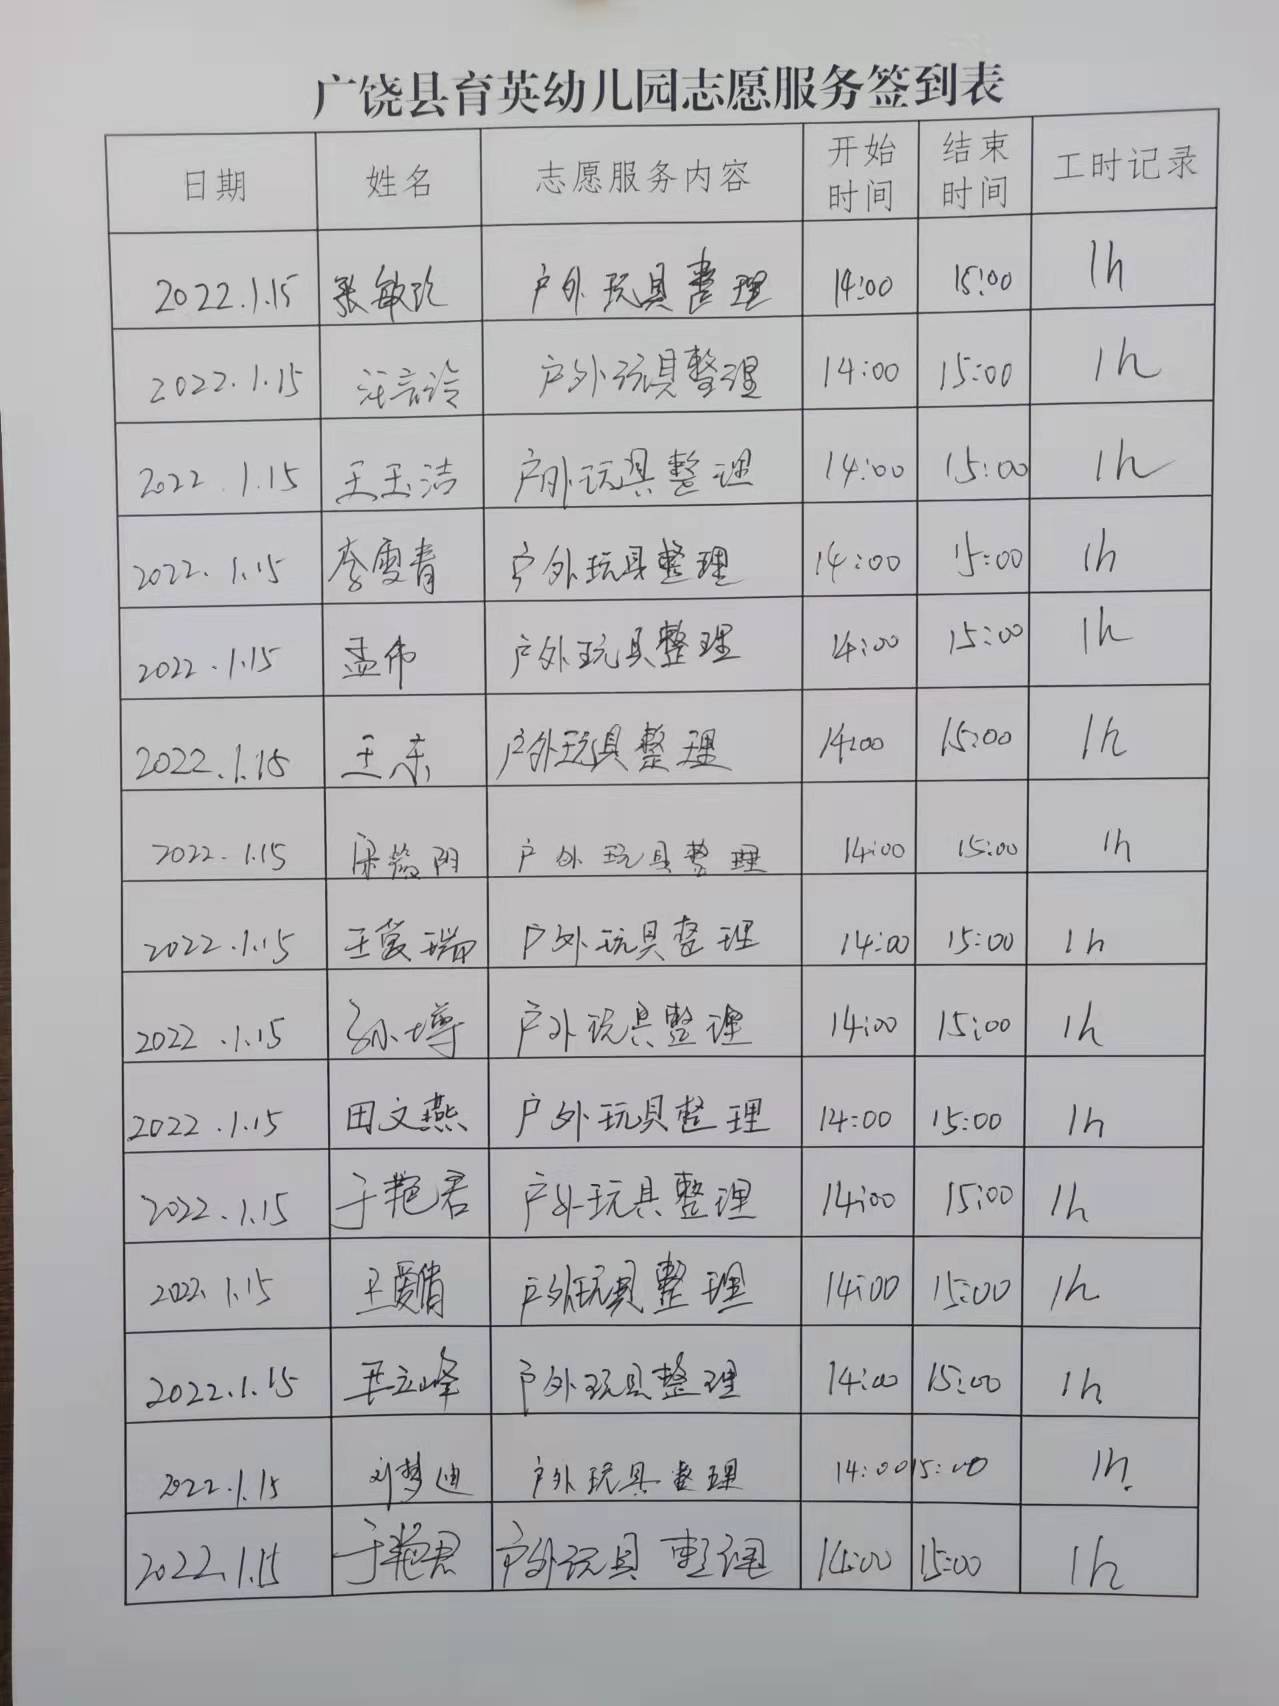 广饶县育英幼儿园志愿服务签到表
日期 姓名 志愿服务内容 开始时间 结束时间 工时记录
2022.1.15 张敏玲 户外玩具整理 14:00 15:00 1h
2022.1.15 汪言玲 户外玩具整理 14:00 15:00 1h
2022.1.15 王玉洁 户外玩具整理 14:00 15:00 1h
2022.1.15 李雪青 户外玩具整理 14:00 15:00 1h
2022.1.15 孟伟 户外玩具整理 14:00 15:00 1h
2022.1.15 王东 户外玩具整理 14:00 15:00 1h
2022.1.15 户外玩具整理 14:00 15:00 1h
2022.1.15 户外玩具整理 14:00 15:00 1h
2022.1.15 孙增 户外玩具整理 14:00 15:00 1h
2022.1.15 田文燕 户外玩具整理 14:00 15:00 1h
2022.1.15 于艳君 户外玩具整理 14:00 15:00 1h
2022.1.15 户外玩具整理 14:00 15:00 1h
2022.1.15 王立峰 户外玩具整理 14:00 15:00 1h
2022.1.15 刘梦迪 户外玩具整理 14:00 15:00 1h.
2022.1.15 于艳君 户外玩具整理 14:00 15:00 1h